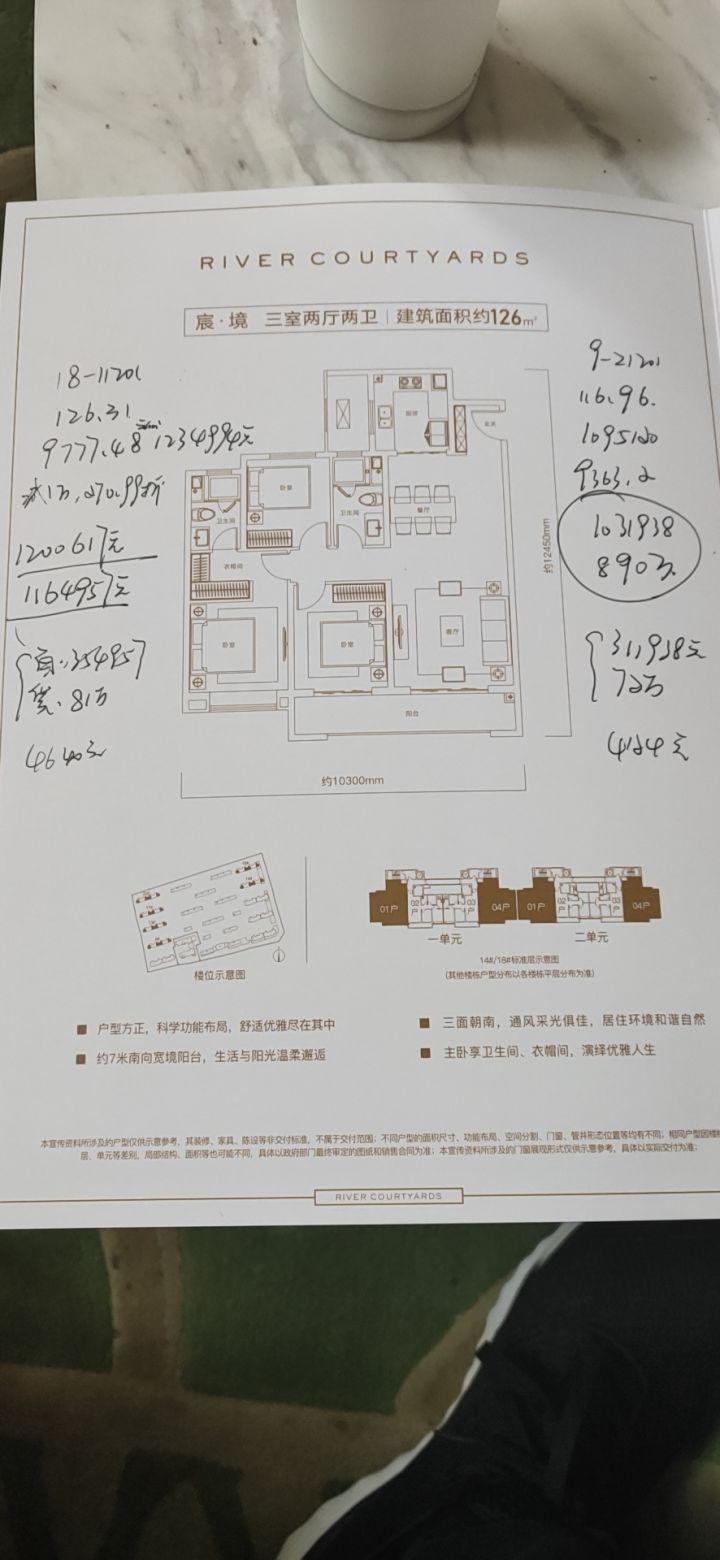 RIVER COURTYARDS
宸·境 三室两厅两卫 | 建筑面积约126m²
18-11201
126.31
9777.48 1234994元
1200617元
1164957元
首:354957
贷:81万
4640元
9-21201
116.96.
1095120
9363.2
1031938
311938元
72万
4124元
厨房
玄关
卧室
卫生间
卫生间
餐厅
衣帽间
卧室
卧室
客厅
阳台
约12450mm
约10300mm
楼位示意图
01户
02户
03户
04户
01户
02户
03户
04户
一单元
二单元
14#/18#标准层示意图
(其他楼栋户型分布以各楼栋平层分布为准)
■ 户型方正，科学功能布局，舒适优雅尽在其中
■ 三面朝南，通风采光俱佳，居住环境和谐自然
■ 约7米南向宽境阳台，生活与阳光温柔邂逅
■ 主卧享卫生间、衣帽间，演绎优雅人生
本宣传资料所涉及的户型仅供示意参考，其装修、家具、陈设等非交付标准，不属于交付范围；不同户型的面积尺寸、功能布局、空间分割、门窗、管井形态位置等均有不同；相同户型因楼
层、单元等差别，局部结构、面积等也可能不同，具体以政府部门最终审定的图纸和销售合同为准；本宣传资料所涉及的门窗展现形式仅供示意参考，具体以实际交付为准；
RIVER COURTYARDS